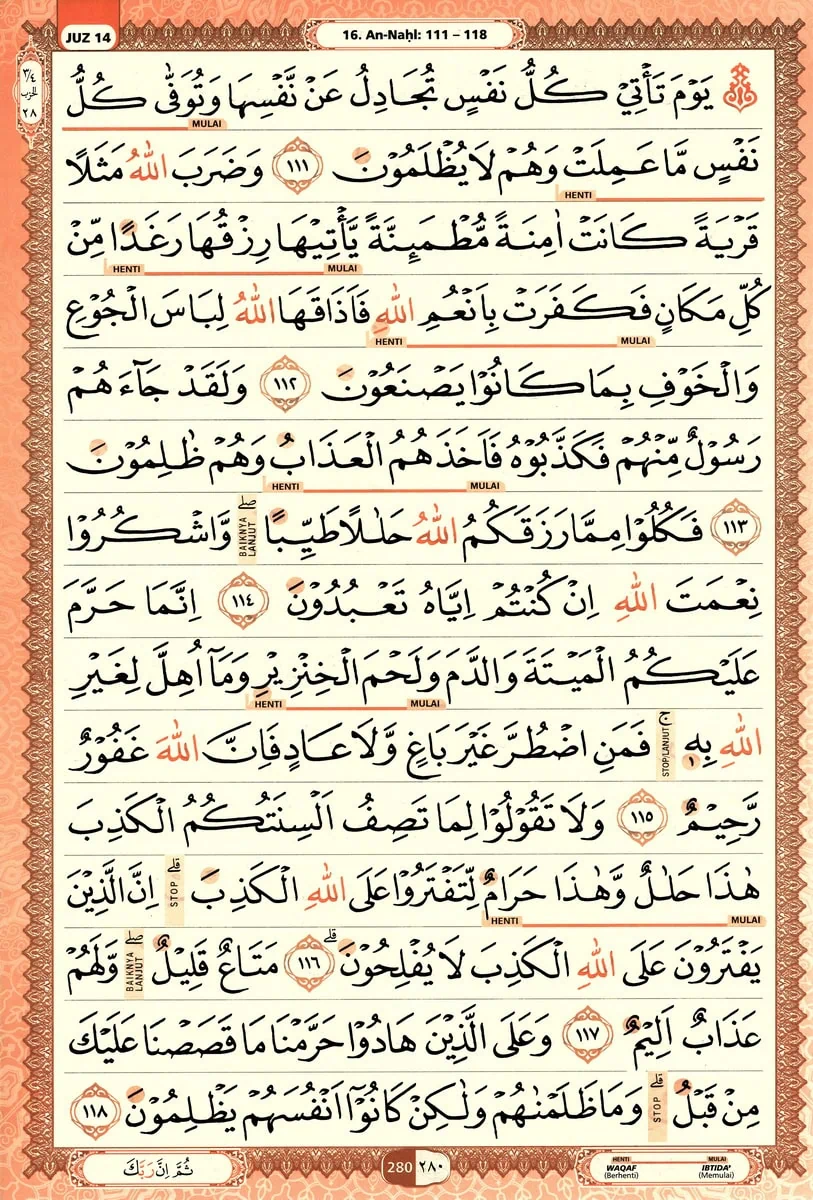 JUZ 14
16. An-Naḥl: 111 – 118
٣/٤
الحزب
٢٨
يَوْمَ تَأْتِيْ كُلُّ نَفْسٍ تُجَادِلُ عَنْ نَّفْسِهَا وَتُوَفّٰى كُلُّ
MULAI
نَفْسٍ مَّا عَمِلَتْ وَهُمْ لَا يُظْلَمُوْنَ ١١١ وَضَرَبَ اللّٰهُ مَثَلًا
HENTI
قَرْيَةً كَانَتْ اٰمِنَةً مُّطْمَىِٕنَّةً يَّأْتِيْهَا رِزْقُهَا رَغَدًا مِّنْ
HENTI MULAI
كُلِّ مَكَانٍ فَكَفَرَتْ بِاَنْعُمِ اللّٰهِ فَاَذَاقَهَا اللّٰهُ لِبَاسَ الْجُوْعِ
HENTI MULAI
وَالْخَوْفِ بِمَا كَانُوْا يَصْنَعُوْنَ ١١٢ وَلَقَدْ جَاۤءَهُمْ
رَسُوْلٌ مِّنْهُمْ فَكَذَّبُوْهُ فَاَخَذَهُمُ الْعَذَابُ وَهُمْ ظٰلِمُوْنَ
HENTI MULAI
١١٣ فَكُلُوْا مِمَّا رَزَقَكُمُ اللّٰهُ حَلٰلًا طَيِّبًا ۖ BAIKNYA LANJUT وَّاشْكُرُوْا
نِعْمَتَ اللّٰهِ اِنْ كُنْتُمْ اِيَّاهُ تَعْبُدُوْنَ ١١٤ اِنَّمَا حَرَّمَ
عَلَيْكُمُ الْمَيْتَةَ وَالدَّمَ وَلَحْمَ الْخِنْزِيْرِ وَمَآ اُهِلَّ لِغَيْرِ
HENTI MULAI
اللّٰهِ بِهٖ ۚ STOP/LANJUT فَمَنِ اضْطُرَّ غَيْرَ بَاغٍ وَّلَا عَادٍ فَاِنَّ اللّٰهَ غَفُوْرٌ
رَّحِيْمٌ ١١٥ وَلَا تَقُوْلُوْا لِمَا تَصِفُ اَلْسِنَتُكُمُ الْكَذِبَ
هٰذَا حَلٰلٌ وَّهٰذَا حَرَامٌ لِّتَفْتَرُوْا عَلَى اللّٰهِ الْكَذِبَ ۗ STOP اِنَّ الَّذِيْنَ
HENTI MULAI
يَفْتَرُوْنَ عَلَى اللّٰهِ الْكَذِبَ لَا يُفْلِحُوْنَ ۗ ١١٦ مَتَاعٌ قَلِيْلٌ ۖ BAIKNYA LANJUT وَّلَهُمْ
عَذَابٌ اَلِيْمٌ ١١٧ وَعَلَى الَّذِيْنَ هَادُوْا حَرَّمْنَا مَا قَصَصْنَا عَلَيْكَ
مِنْ قَبْلُ ۗ STOP وَمَا ظَلَمْنٰهُمْ وَلٰكِنْ كَانُوْٓا اَنْفُسَهُمْ يَظْلِمُوْنَ ١١٨
ثُمَّ اِنَّ رَبَّكَ
280 ٢٨٠
HENTI MULAI
WAQAF IBTIDA'
(Berhenti) (Memulai)